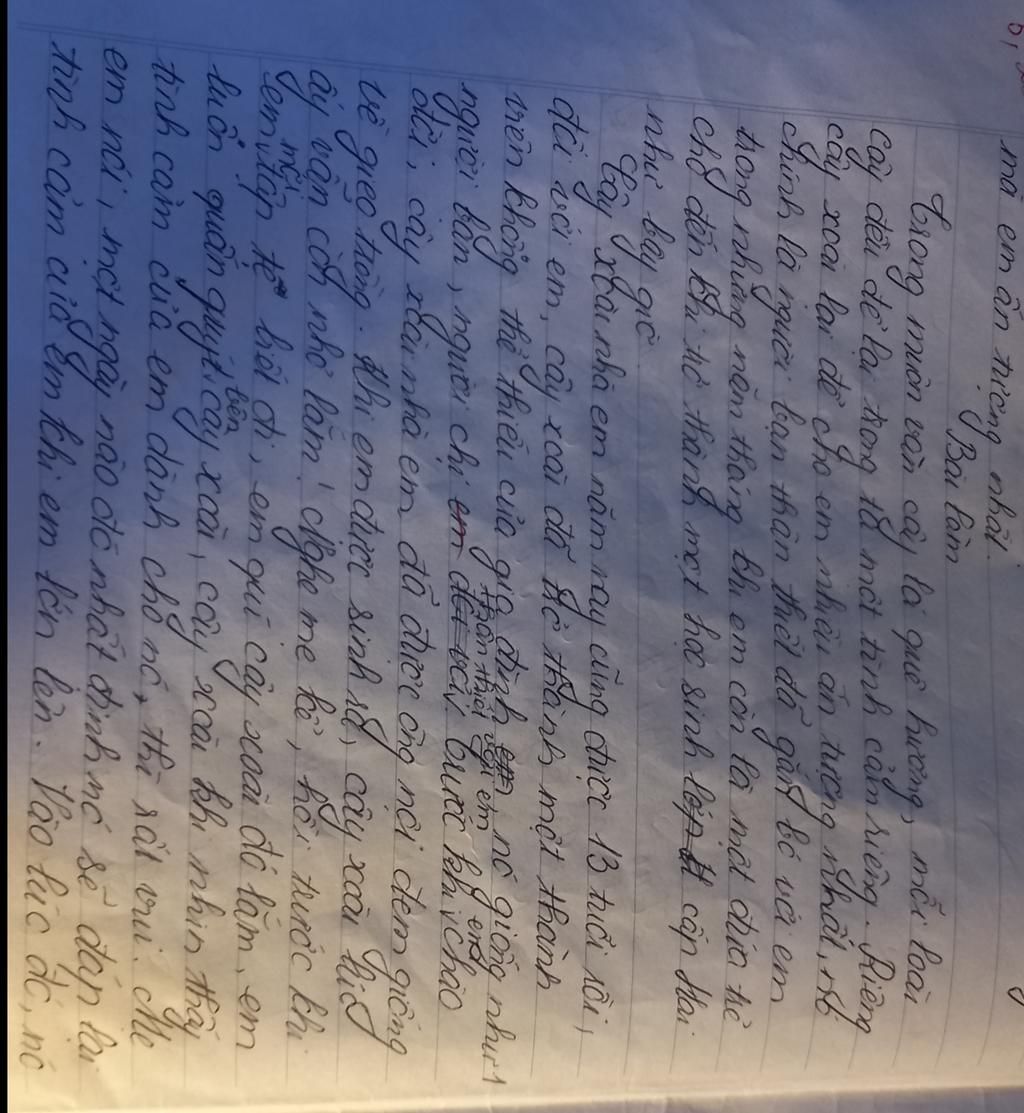 mà em ấn tượng nhất.
Bài làm
Trong muôn vàn cây lá quê hương, mỗi loài
cây đều để lại trong ta một tình cảm riêng. Riêng
cây xoài lại để cho em nhiều ấn tượng nhất, nó
chính là người bạn thân thiết đã gắn bó với em
trong những năm tháng khi em còn là một đứa trẻ
cho đến khi trở thành một học sinh cấp Hai
như bây giờ.
Cây xoài nhà em năm nay cũng được 13 tuổi rồi,
đối với em, cây xoài đã trở thành một thành
viên không thể thiếu của gia đình nó giống như 1
người bạn, người chị thân thiết với em. Trước khi chào
đời, cây xoài nhà em đã được ông nội đem giống
về gieo trồng. Khi em được sinh ra, cây xoài lúc
ấy vẫn còn nhỏ lắm, nghe mẹ kể, hồi trước khi
em mới tập hồi đi, em quí cây xoài đó lắm, em
luôn quấn quýt bên cây xoài, cây xoài khi nhìn thấy
tình cảm của em dành cho nó, thì rất vui. Mẹ
em nói, một ngày nào đó nhất định nó sẽ đáp lại
tình cảm của em khi em lớn lên. Vào lúc đó, nó